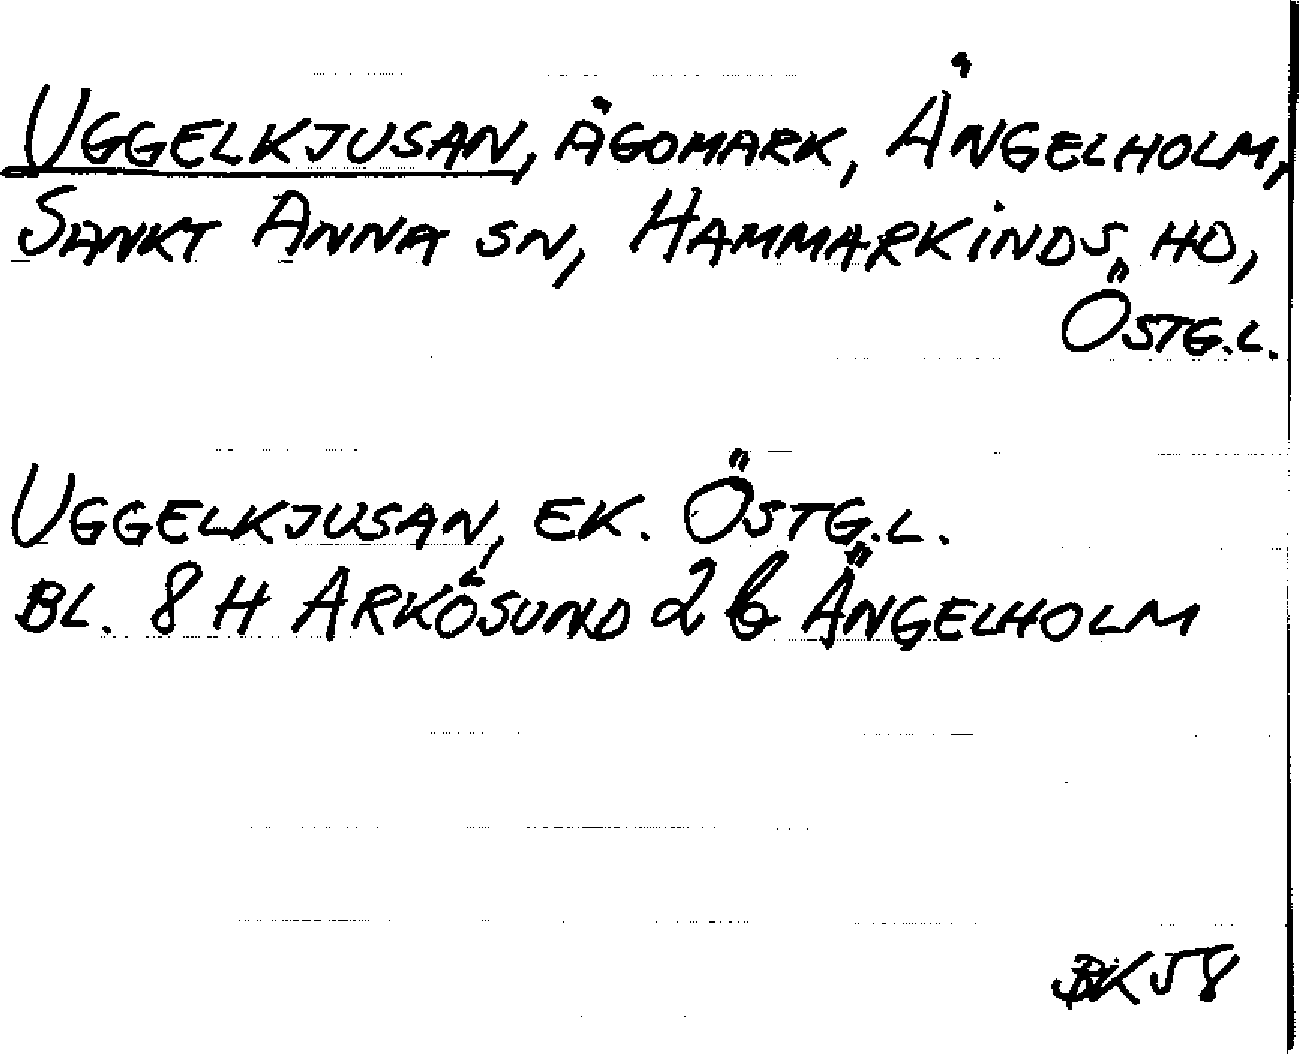 UGGELKJUSAN, ÄGOMARK, ÄNGELHOLM,
SANKT ANNA SN, HAMMARKINDS HD,
ÖSTG.L.
UGGELKJUSAN, EK. ÖSTG.L.
BL. 8 H ARKÖSUND 2 b ÄNGELHOLM
BK58